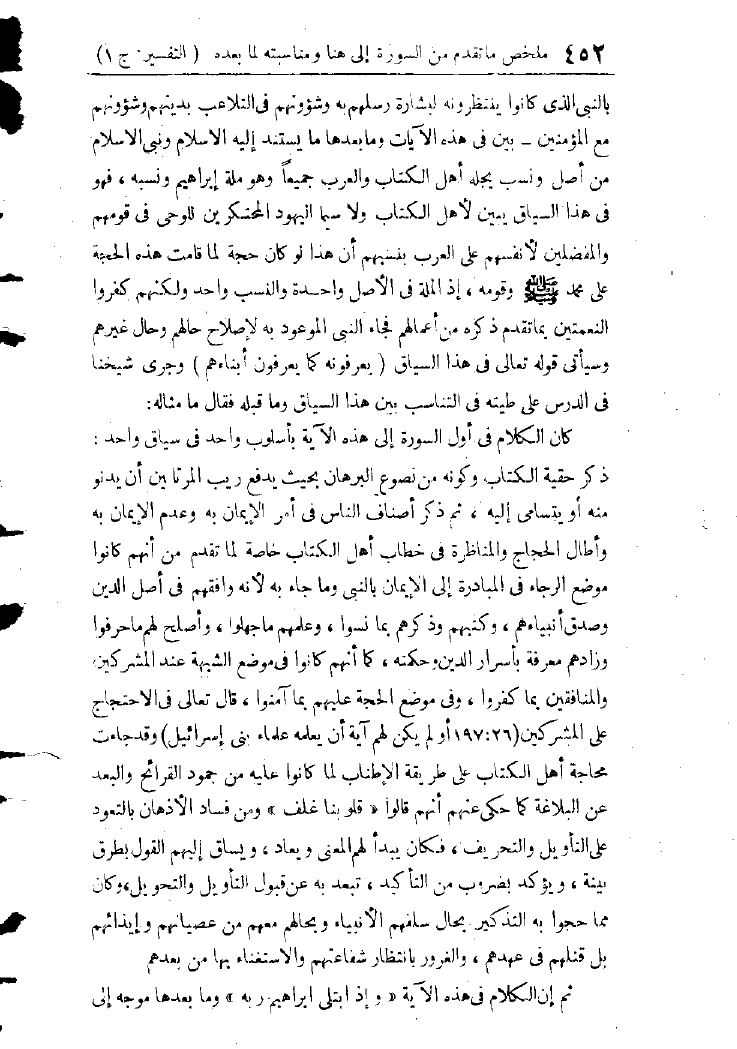 ٤٥٢ ملخص ما تقدم من السورة إلى هنا ومناسبته لما بعده ( التفسير : ج ١ )
بالنبي الذى كانوا ينتظرونه لبشارة رسلهم به وشؤونهم فى التلاعب بدينهم وشؤونهم
مع المؤمنين - بين فى هذه الآيات وما بعدها ما يستند إليه الاسلام ونبى الاسلام
من أصل ونسب يجله أهل الكتاب والعرب جميعاً وهو ملة إبراهيم ونسبه ، فهو
فى هذا السياق يبين لأهل الكتاب ولا سيما اليهود المحتكرين للوحى فى قومهم
والمفضلين لأنفسهم على العرب بنسبهم أن هذا لو كان حجة لما قامت هذه الحجة
على محمد ﷺ وقومه ، إذ الملة فى الأصل واحدة والنسب واحد ولكنهم كفروا
النعمتين بما تقدم ذكره من أعمالهم فجاء النبى الموعود به لإصلاح حالهم وحال غيرهم
وسيأتى قوله تعالى فى هذا السياق ( يعرفونه كما يعرفون أبناءهم ) وجرى شيخنا
فى الدرس على طيته فى التناسب بين هذا السياق وما قبله فقال ما مثاله :
كان الكلام فى أول السورة إلى هذه الآية بأسلوب واحد فى سياق واحد :
ذكر حقية الكتاب وكونه من نصوع البرهان بحيث يدفع ريب المرتابين أن يدنو
منه أو يتسامى إليه ، ثم ذكر أصناف الناس فى أمر الإيمان به وعدم الإيمان به
وأطال الحجاج والمناظرة فى خطاب أهل الكتاب خاصة لما تقدم من أنهم كانوا
موضع الرجاء فى المبادرة إلى الإيمان بالنبي وما جاء به لأنه وافقهم فى أصل الدين
وصدق أنبياءهم ، وكتبهم وذكرهم بما نسوا ، وعلمهم ما جهلوا ، وأصلح لهم ما حرفوا
وزادهم معرفة بأسرار الدين وحكمته ، كما أنهم كانوا فى موضع الشبهة عند المشركين
والمنافقين بما كفروا ، وفى موضع الحجة عليهم بما آمنوا ، قال تعالى فى الاحتجاج
على المشركين (١٩٧:٢٦ أو لم يكن لهم آية أن يعلمه علماء بنى إسرائيل) وقد جاءت
محاجة أهل الكتاب على طريقة الإطناب لما كانوا عليه من جمود القرائح والبعد
عن البلاغة كما حكى عنهم أنهم قالوا « قلوبنا غلف » ومن فساد الأذهان بالتعود
على التأويل والتحريف ، فكان يبدأ لهم المعنى ويعاد ، ويساق إليهم القول بطرق
بينة ، ويؤكد بضروب من التأكيد ، تبعد به عن قبول التأويل والتحويل ، وكان
مما حجوا به التذكير بحال سلفهم الأنبياء وبحالهم معهم من عصيانهم وإيذائهم
بل قتلهم فى عهدهم ، والغرور بانتظار شفاعتهم والاستغناء بها من بعدهم
ثم إن الكلام فى هذه الآية « وإذ ابتلى ابراهيم ربه » وما بعدها موجه إلى